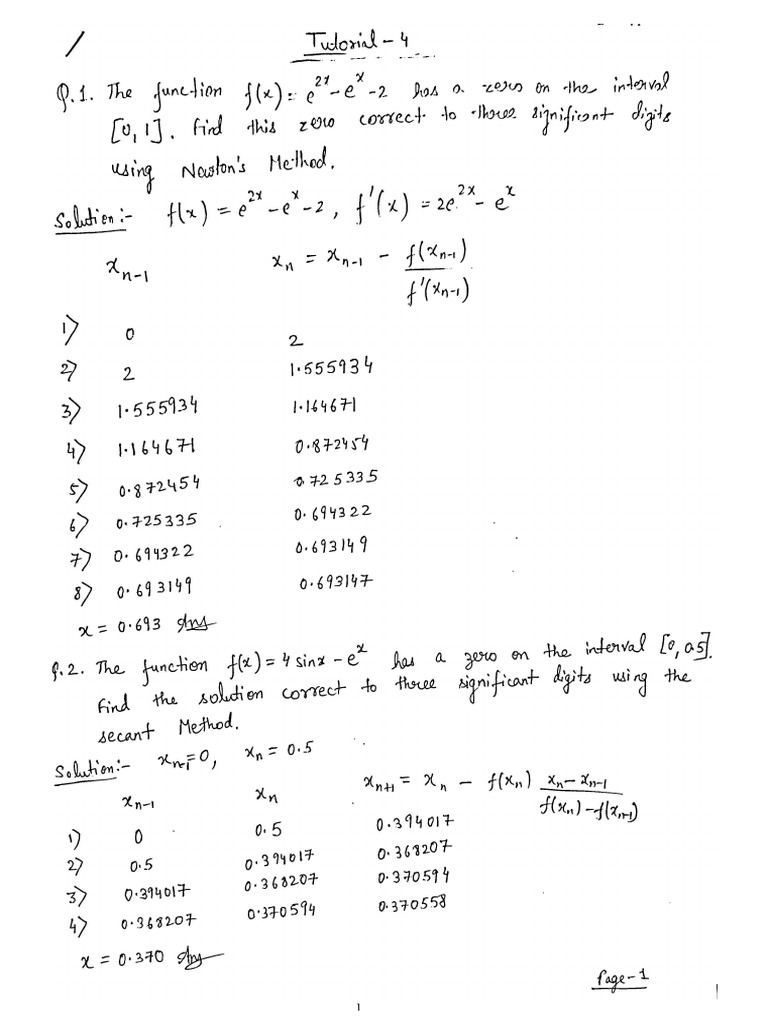 Tutorial-4
Q.1. The function f(x) = e^{2x} - e^x - 2 has a zero on the interval
[0,1]. Find this zero correct to three significant digits
using Newton's Method.
Solution:- f(x) = e^{2x} - e^x - 2, f'(x) = 2e^{2x} - e^x
x_{n-1} x_n = x_{n-1} - f(x_{n-1}) / f'(x_{n-1})
1) 0 2
2) 2 1.555934
3) 1.555934 1.164671
4) 1.164671 0.872454
5) 0.872454 0.725335
6) 0.725335 0.694322
7) 0.694322 0.693149
8) 0.693149 0.693147
x = 0.693 Ans
Q.2. The function f(x) = 4 sinx - e^x has a zero on the interval [0, 0.5].
Find the solution correct to three significant digits using the
secant Method.
Solution:- x_{n-1} = 0, x_n = 0.5
x_{n-1} x_n x_{n+1} = x_n - f(x_n) x_n - x_{n-1} / f(x_n) - f(x_{n-1})
1) 0 0.5 0.394017
2) 0.5 0.394017 0.368207
3) 0.394017 0.368207 0.370594
4) 0.368207 0.370594 0.370558
x = 0.370 Ans
Page-1
1